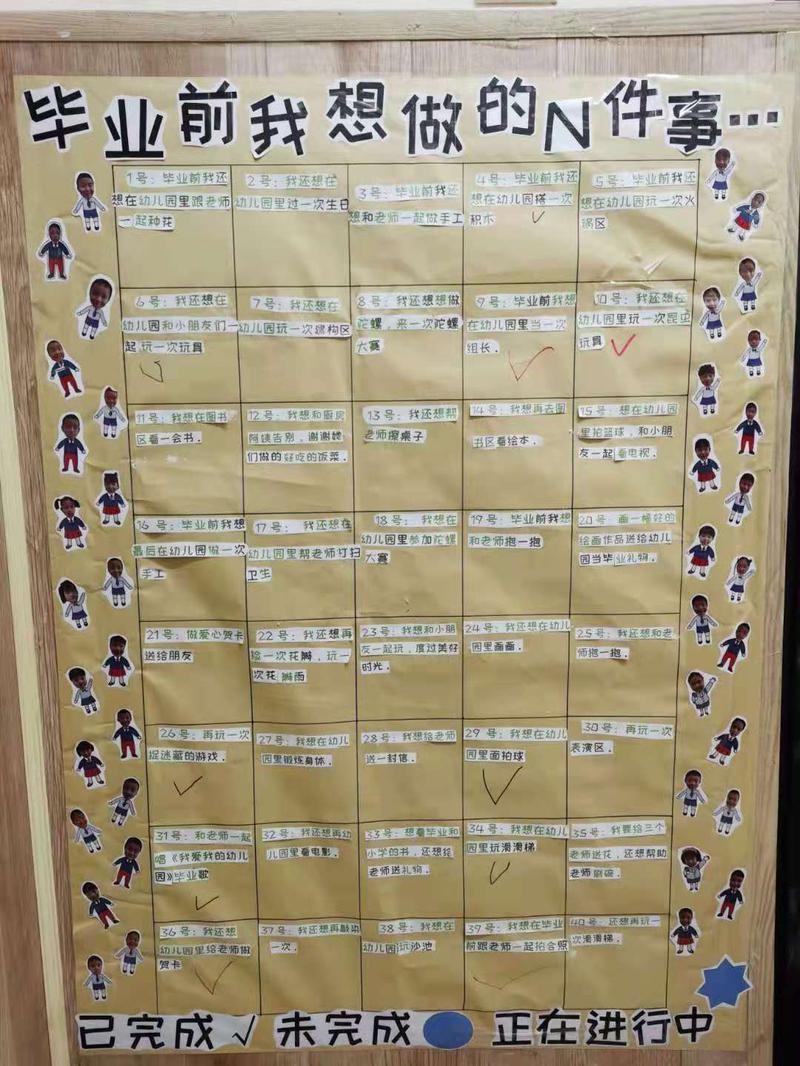 毕业前我想做的N件事...
1号：毕业前我还
想在幼儿园里跟老师
一起种花
2号：我还想在
幼儿园里过一次生日
3号：毕业前我还
想和老师一起做手工
4号：毕业前我还
想在幼儿园搭一次
积木 ✓
5号：毕业前我还
想在幼儿园玩一次火
锅区
6号：我还想在
幼儿园和小朋友们一
起玩一次玩具
✓
7号：我还想在
幼儿园玩一次建构区
8号：我还想想做
陀螺，来一次陀螺
大赛
9号：毕业前我想
在幼儿园里当一次
组长。 ✓
10号：我还想在
幼儿园里玩一次昆虫
玩具 ✓
11号：我想在图书
区看一会书．
12号：我想和厨房
阿姨告别，谢谢她
们做的好吃的饭菜．
13号：我还想帮
老师擦桌子
14号：我想再去图
书区看绘本．
15号：想在幼儿园
里拍篮球，和小朋
友一起看电视．
16号：毕业前我想
最后在幼儿园做一次
手工
17号：我还想在
幼儿园里帮老师打扫
卫生
18号：我想在
幼儿园里参加陀螺
大赛
19号：毕业前我想
和老师抱一抱
20号：画一幅好的
绘画作品送给幼儿
园当毕业礼物．
21号：做爱心贺卡
送给朋友
22号：我还想再
捡一次花瓣，玩一
次花瓣雨
23号：我想和小朋
友一起玩，度过美好
时光．
24号：我还想在幼儿
园里画画．
25号：我还想和老
师抱一抱．
26号：再玩一次
捉迷藏的游戏．
✓
27号：我想在幼儿
园里锻炼身体．
28号：我想给老师
送一封信．
29号：我想在幼儿
园里面拍球
✓
30号：再玩一次
表演区．
31号：和老师一起
唱《我爱我的幼儿
园》毕业歌
✓
32号：我还想再幼
儿园里看电影．
33号：想看毕业和
小学的书，还想给
老师送礼物．
34号：我想在幼儿
园里玩滑滑梯
✓
35号：我要给三个
老师送花，还想帮助
老师刷碗．
36号：我还想
幼儿园里给老师做
贺卡 ✓
37号：我还想再
一次．
38号：我想在
幼儿园玩沙池
39号：我想在毕业
前跟老师一起拍合照
✓
40号：还想再玩一
次滑滑梯．
已完成√ 未完成 正在进行中